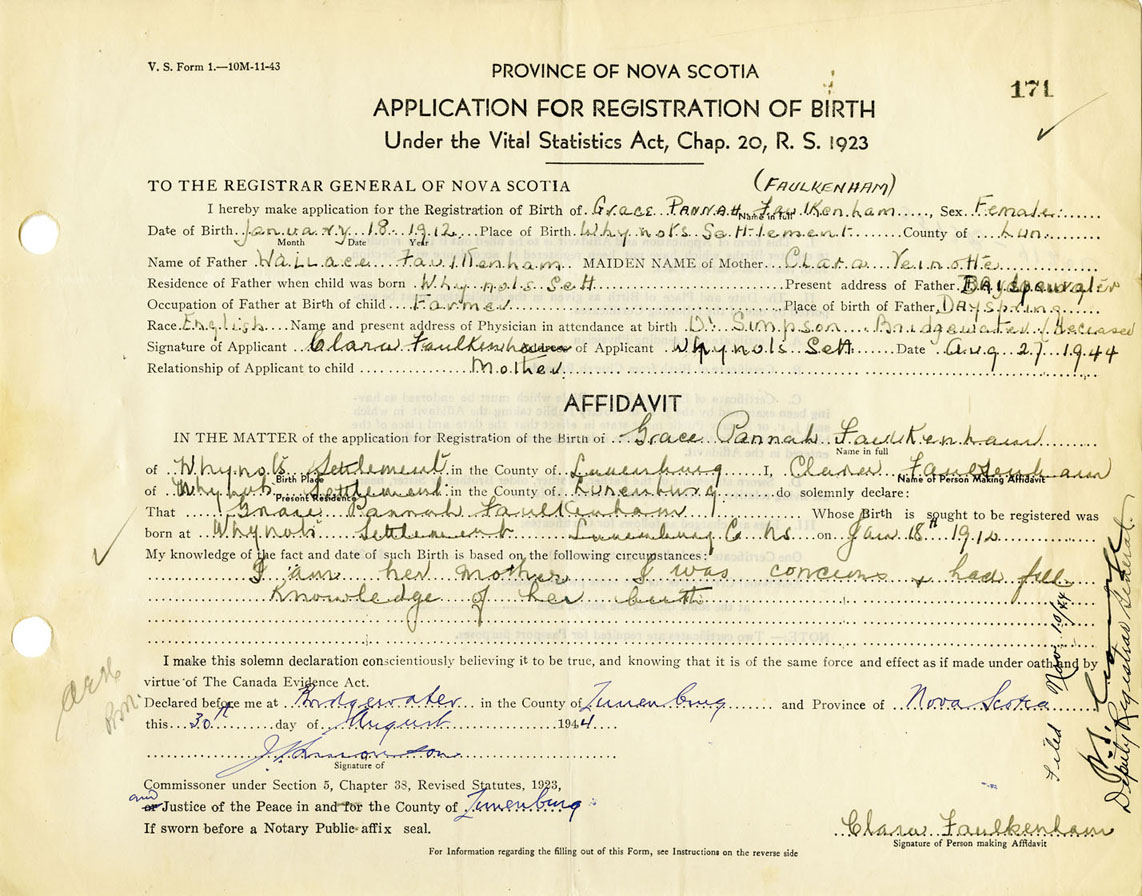 V. S. Form 1.—10M-11-43
PROVINCE OF NOVA SCOTIA
171
APPLICATION FOR REGISTRATION OF BIRTH
Under the Vital Statistics Act, Chap. 20, R. S. 1923
TO THE REGISTRAR GENERAL OF NOVA SCOTIA
(FAULKENHAM)
I hereby make application for the Registration of Birth of Grace PANNAH Faulkenham, Sex Female
Name in full
Date of Birth January 18 1912 Place of Birth Whynots Settlement County of Lun.
Month Date Year
Name of Father Wallace Faulkenham MAIDEN NAME of Mother Clara Veinotte
Residence of Father when child was born Whynots Sett Present address of Father
Occupation of Father at Birth of child Farmer Place of birth of Father DAYSpring
Race English Name and present address of Physician in attendance at birth Dr Simpson Bridgewater (deceased
Signature of Applicant Clara Faulkenham Address of Applicant Whynots Sett Date Aug 27 1944
Relationship of Applicant to child Mother
AFFIDAVIT
IN THE MATTER of the application for Registration of the Birth of Grace Pannah Faulkenham
Name in full
of Whynots Settlement in the County of Lunenburg I, Clara Faulkenham
Birth Place Name of Person Making Affidavit
of Whynots Settlement in the County of Lunenburg do solemnly declare:
Present Residence
That Grace Pannah Faulkenham Whose Birth is sought to be registered was
born at Whynots Settlement Lunenburg Co NS on Jan 18th 1912
My knowledge of the fact and date of such Birth is based on the following circumstances:
I am her mother I was concious & had full
knowledge of her birth
I make this solemn declaration conscientiously believing it to be true, and knowing that it is of the same force and effect as if made under oath and by
virtue of The Canada Evidence Act.
Declared before me at Bridgewater in the County of Lunenburg and Province of Nova Scotia
this 30th day of August 1944
Signature of
Commissoner under Section 5, Chapter 38, Revised Statutes, 1923,
and
or Justice of the Peace in and for the County of Lunenburg
If sworn before a Notary Public affix seal.
Clara Faulkenham
Signature of Person making Affidavit
For Information regarding the filling out of this Form, see Instructions on the reverse side
Filed Nov. 10/44
Deputy Registrar General